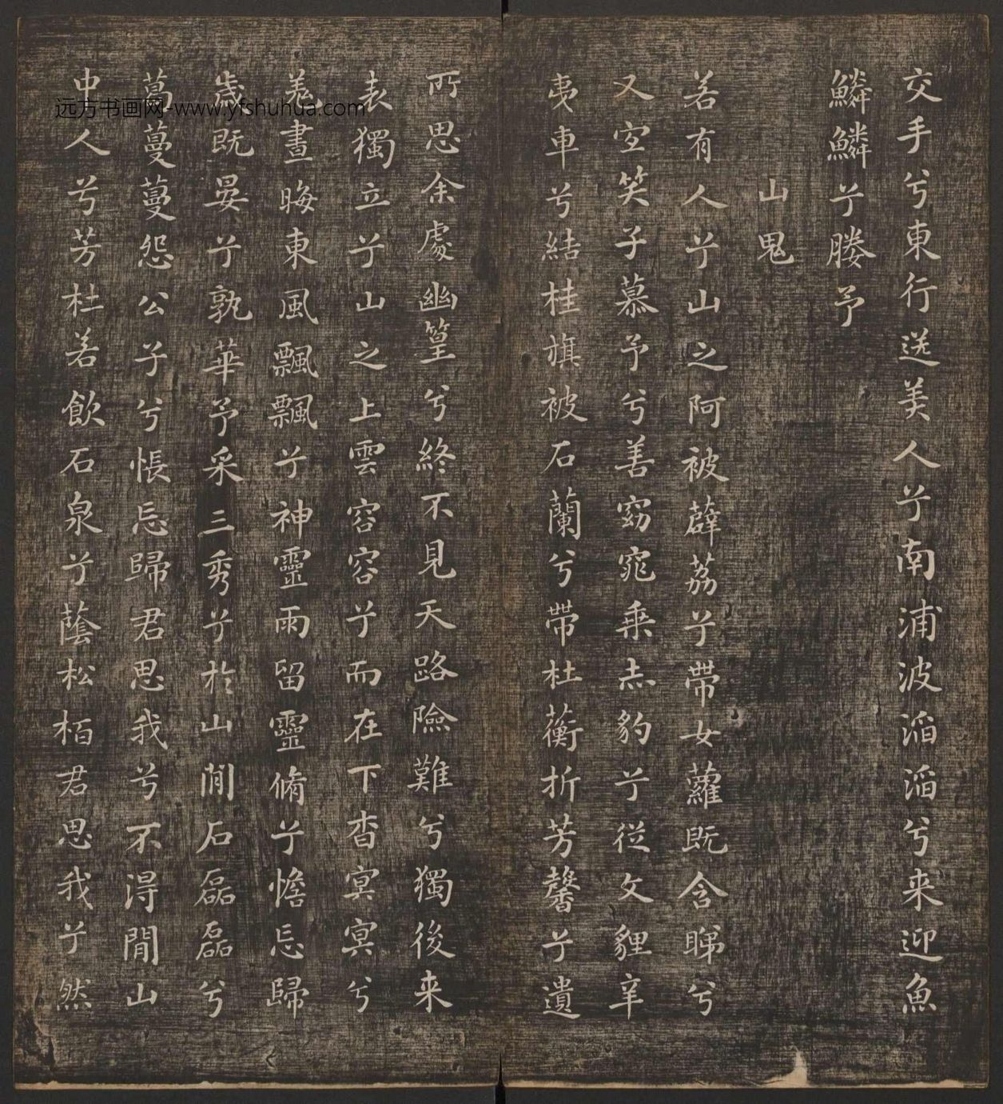 交手兮東行送美人兮南浦波滔滔兮来迎魚
鱗鱗兮媵予
山鬼
若有人兮山之阿被薜荔兮帶女蘿既含睇兮
又宜笑子慕予兮善窈窕乘赤豹兮従文貍辛
夷車兮結桂旗被石蘭兮帶杜蘅折芳馨兮遺
所思余處幽篁兮終不見天路險難兮獨後来
表獨立兮山之上雲容容兮而在下杳冥冥兮
羌晝晦東風飄飄兮神靈雨留靈脩兮憺忘歸
歳既晏兮孰華予采三秀兮於山間石磊磊兮
葛蔓蔓怨公子兮悵忘歸君思我兮不得閒山
中人兮芳杜若飲石泉兮蔭松栢君思我兮然
远方书画网-www.yfshuhua.com